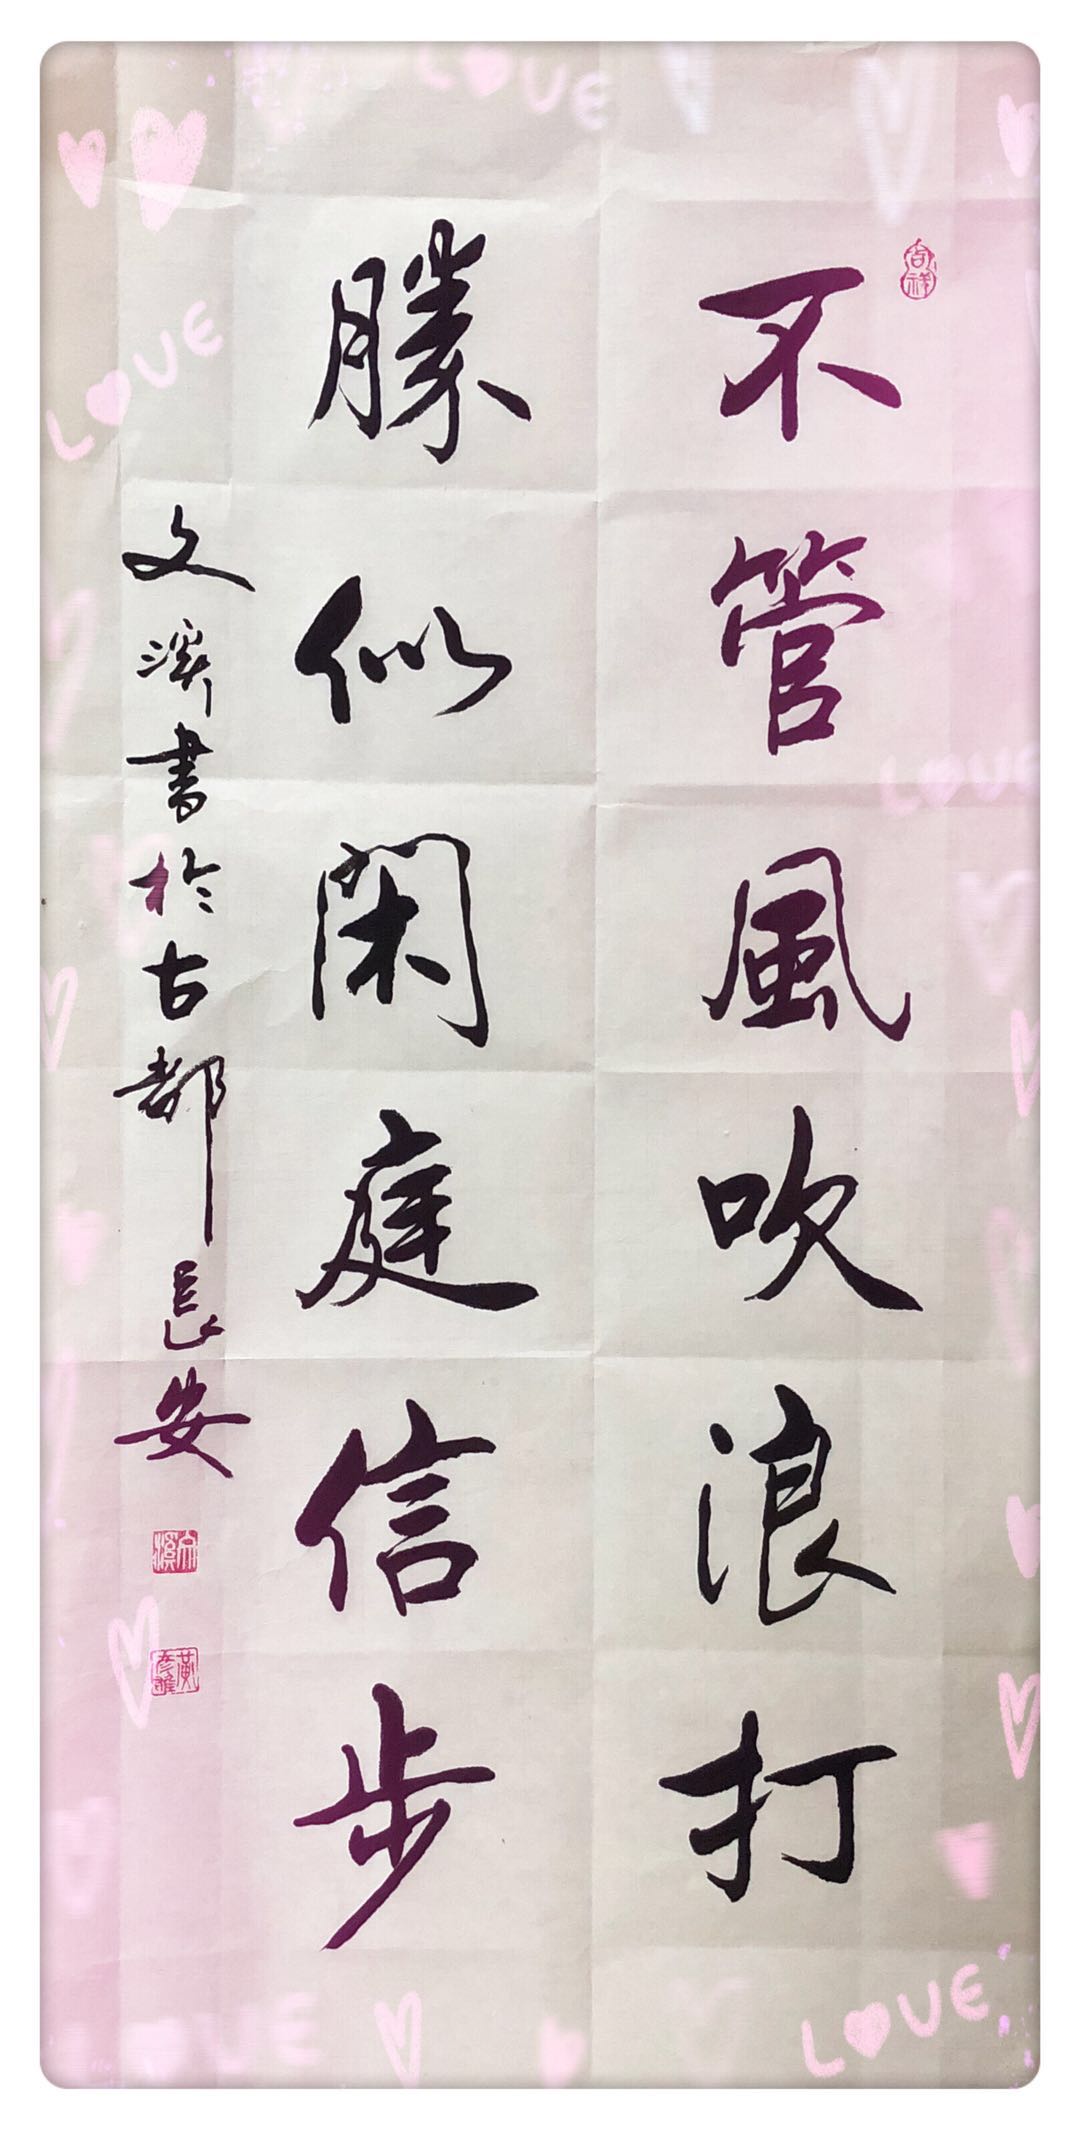 LOVE
吉祥
不管風吹浪打
勝似閑庭信步
文溪書於古都長安
LOVE
LOVE
LOVE
LOVE